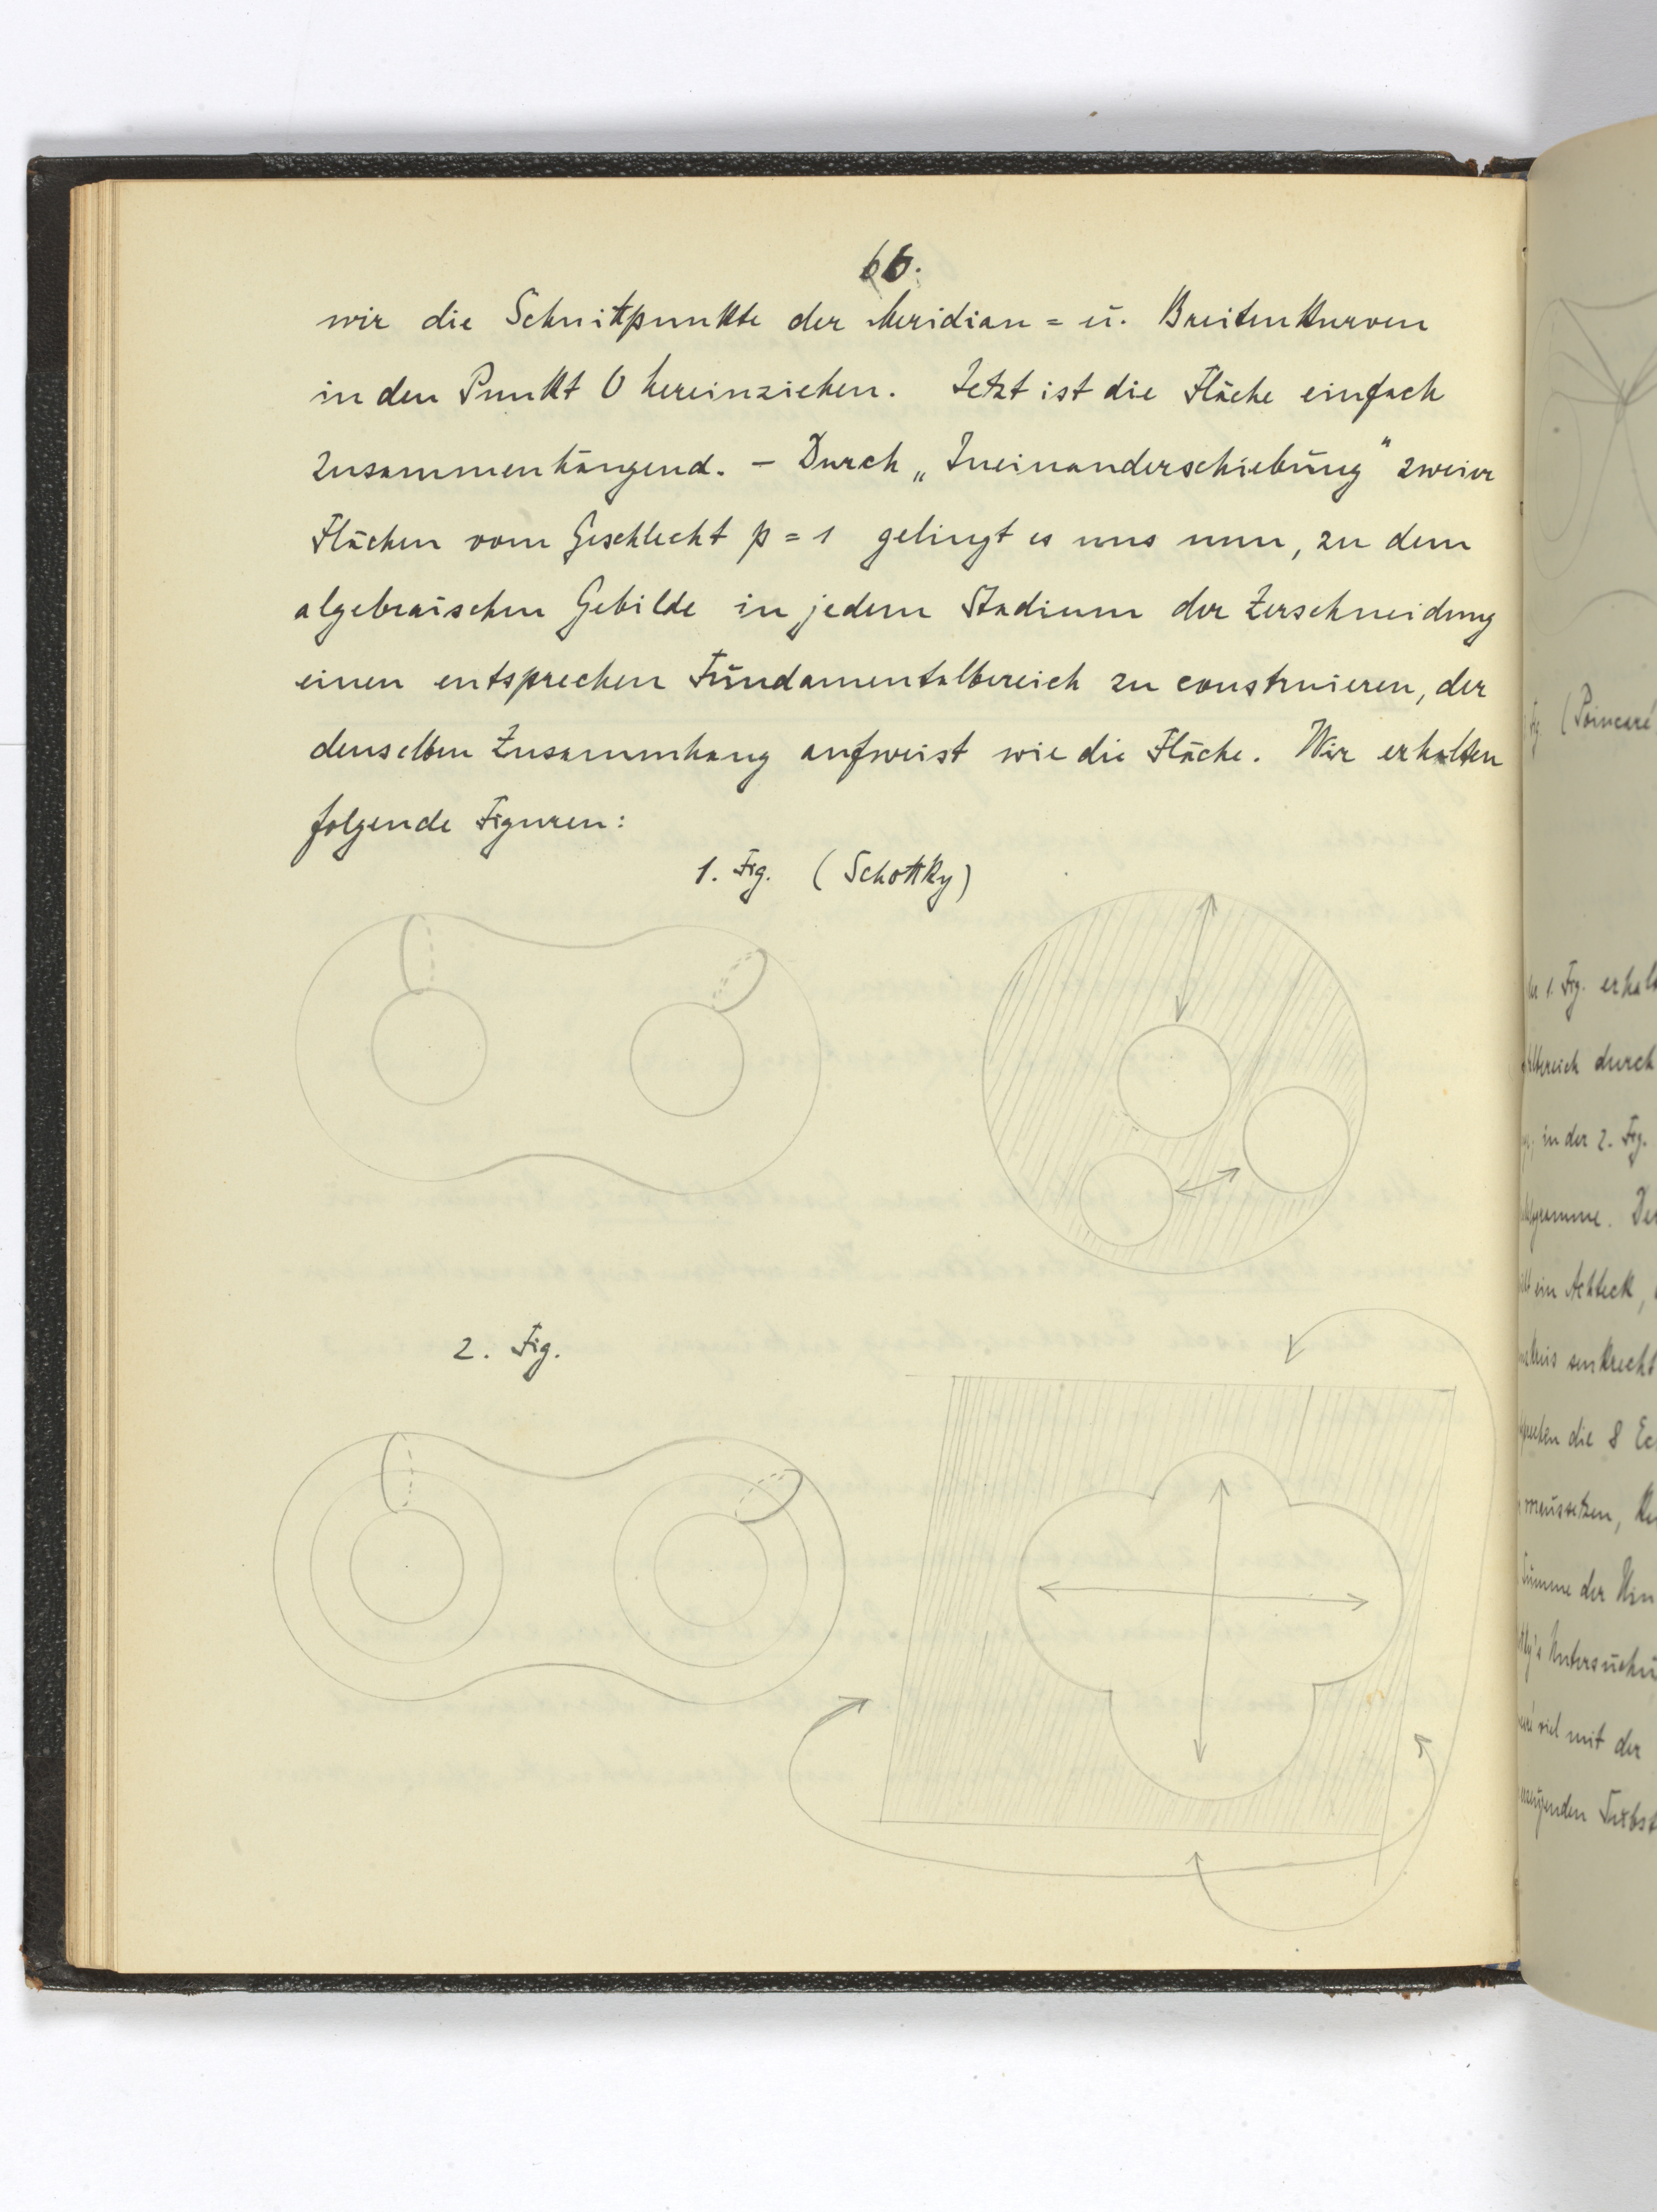 66.
wir die Schnittpunkte der Meridian = u. Breitenkurven
in den Punkt O hereinziehen. Jetzt ist die Fläche einfach
zusammenhängend. – Durch „Ineinanderschiebung" zweier
Flächen vom Geschlecht p = 1 gelingt es uns nun, zu dem
algebraischen Gebilde in jedem Stadium der Zerschneidung
einen entsprechen Fundamentalbereich zu construieren, der
denselben Zusammhang aufweist wie die Fläche. Wir erhalten
folgende Figuren:
1. Fig. (Schottky)
2. Fig.
(Poincaré
1. Fig.
durch
in der 2. Fig.
ein Achteck,
senkrecht
die 8
Summe der
viel mit der